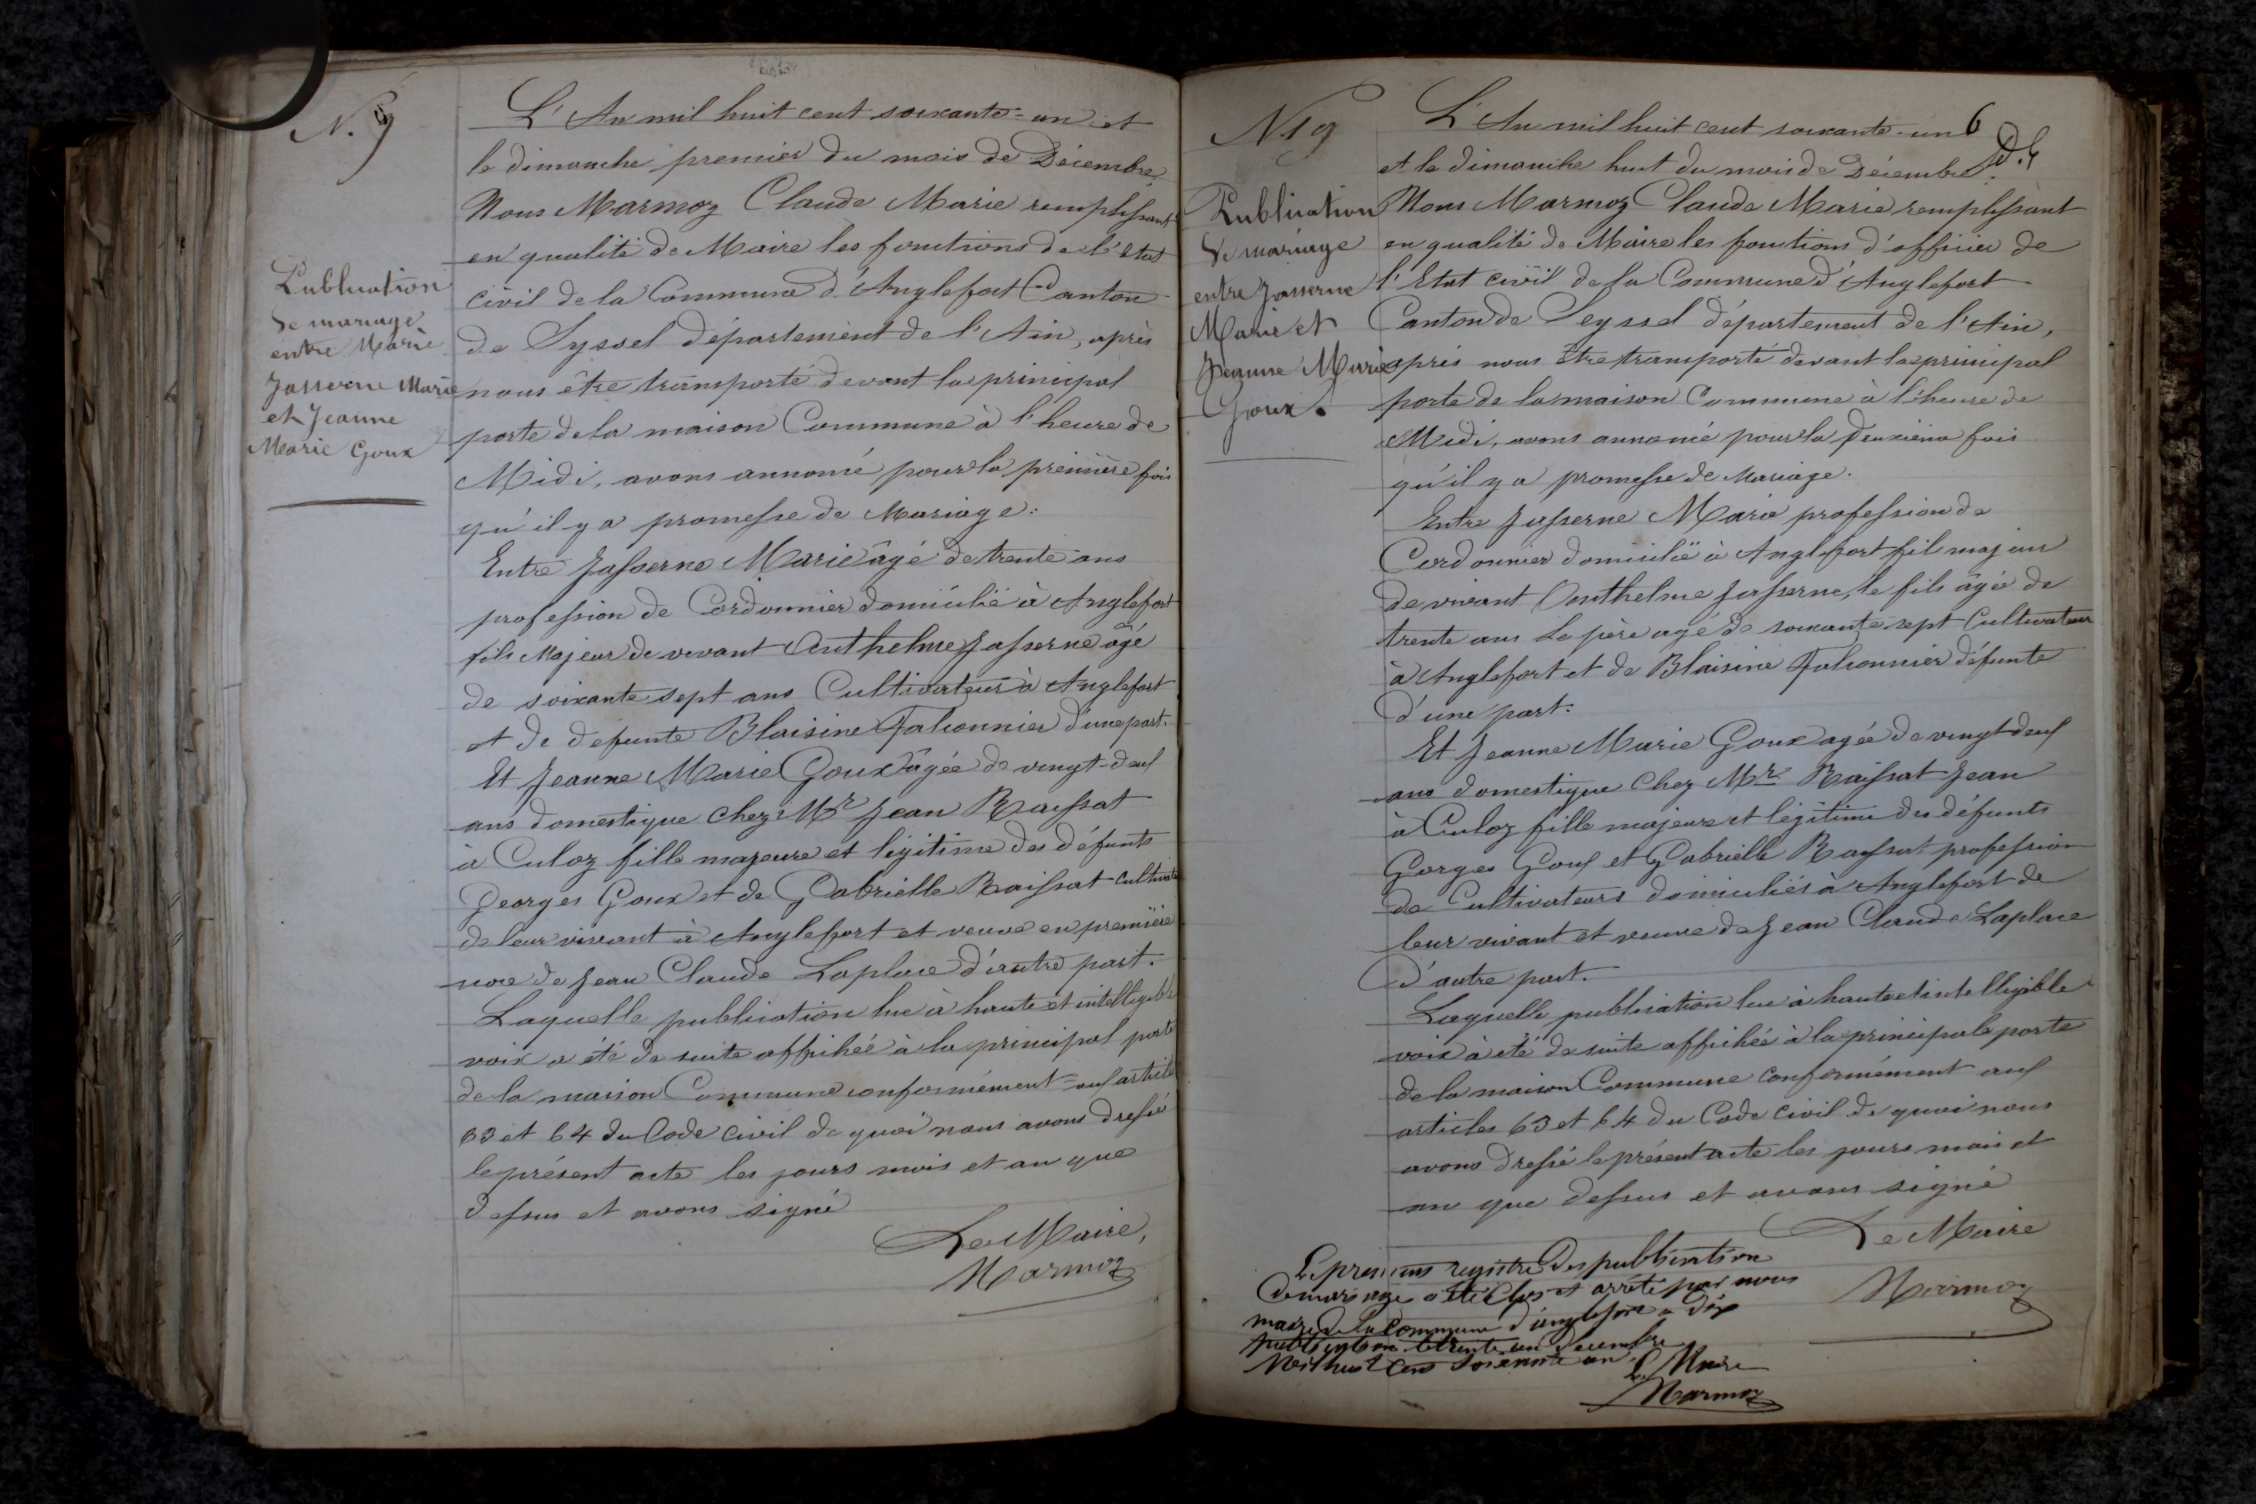 N. 9
Publication
de mariage
entre Marie
Jasserne Marie
et Jeanne
Marie Goux
L'An mil huit cent soixante-un et
le dimanche premier du mois de Décembre
Nous Marmoz Claude Marie remplissant
en qualité de Maire les fonctions de l'état
civil de la Commune d'Anglefort Canton
de Syssel département de l'Ain, après
nous être transporté devant la principal
porte de la maison Commune à l'heure de
Midi, avons annoncé pour la première fois
qu'il y a promesse de Mariage:
Entre Jasserne Marie âgé de trente ans
profession de Cordonnier domicilié à Anglefort
fils Majeur de vivant Anthelme Jasserne âgé
de soixante sept ans Cultivateur à Anglefort
et de défunte Blaisine Falconnier d'une part.
Et Jeanne Marie Goux âgée de vingt-deux
ans domestique chez Mr Jean Raissat
à Culoz fille majeure et légitime des défunts
Georges Goux et de Gabrielle Raissat cultivate
de leur vivant à Anglefort et veuve en première
noce de Jean Claude Laplace d'autre part.
Laquelle publication lue à haute et intelligible
voix a été de suite affichée à la principal porte
de la maison Commune conformément aux article
63 et 64 du Code civil de quoi nous avons dressé
le présent acte les jours mois et an que
dessus et avons signé
Le Maire,
Marmoz
N 19
Publication
de mariage
entre Jasserne
Marie et
Jeanne Marie
Goux.
6
L'An mil huit cent soixante-un
et le dimanche huit du mois de Décembre.
Nous Marmoz Claude Marie remplissant
en qualité de Maire les fonctions d'officier de
l'Etat civil de la Commune d'Anglefort
Canton de Seyssel département de l'Ain,
après nous être transporté devant la principal
porte de la maison Commune à l'heure de
Midi, avons annoncé pour la deuxième fois
qu'il y a promesse de Mariage.
Entre Jasserne Marie profession de
Cordonnier domicilié à Anglefort fils majeur
de vivant Anthelme Jasserne, le fils âgé de
trente ans le père agé de soixante sept Cultivateur
à Anglefort et de Blaisine Falconnier défunte
d'une part.
Et Jeanne Marie Goux agée de vingt-deux
ans domestique chez Mr Raissat Jean
à Culoz fille majeure et légitime des défunts
Gorges Goux et Gabrielle Raissat profession
de Cultivateurs domiciliés à Anglefort de
leur vivant et veuve de Jean Claude Laplace
d'autre part.
Laquelle publication lue à haute et intelligible
voix à été de suite affichée à la principale porte
de la maison Commune conformément aux
articles 63 et 64 du Code civil de quoi nous
avons dressé le présent acte les jours mois et
an que dessus et avons signé
Le Maire
Marmoz
Le present registre des publication
de mariage a été Clos et arrêté par nous
maire de la Commune d'anglefort a dix
publication le trente un decembre
Mil huit cent soixante un
Le Maire
Marmoz